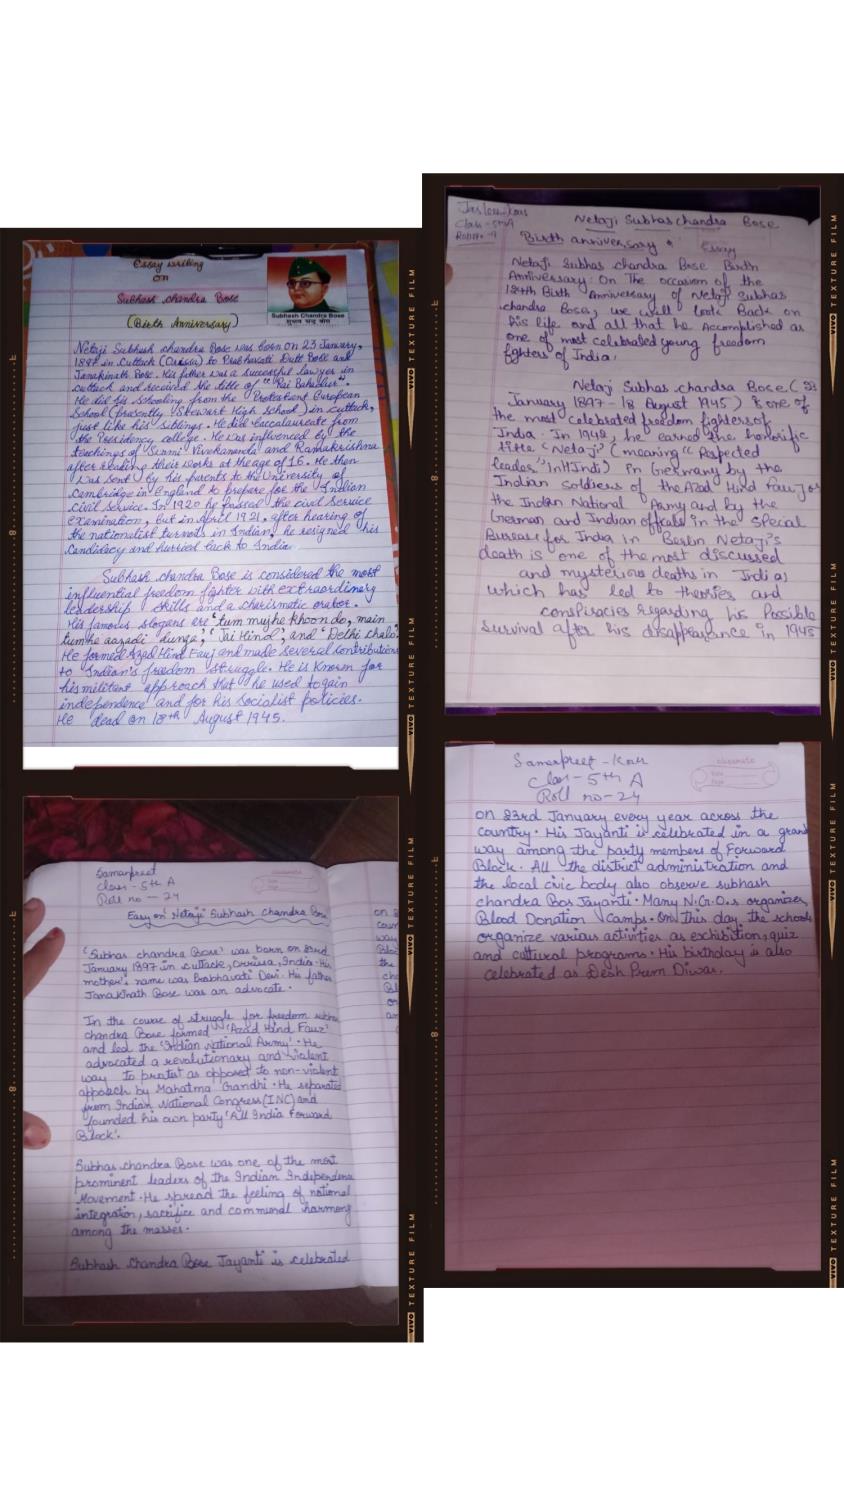 Essay writing
on
Subhash chandra Bose
(Birth Anniversary)
Subhash Chandra Bose
सुभाष चन्द्र बोस
Netaji Subhash chandra Bose was born on 23 January,
1897 in Cuttack (Orissa) to Prabhavati Dutt Bose and
Janakinath Bose. His father was a successful lawyer in
cuttack and received the title of "Rai Bahadur".
He did his schooling from the Protestant European
School (presently Stewart High School) in cuttack,
just like his siblings. He did baccalaureate from
the Presidency college. He was influenced by the
teachings of Swami Vivekananda and Ramakrishna
after reading their works at the age of 16. He then
was sent by his parents to the University of
Cambridge in England to prepare for the Indian
civil Service. In 1920 he passed the civil Service
examination, but in april 1921, after hearing of
the nationalist turmoils in Indian, he resigned his
Candidacy and hurried back to India.
Subhash chandra Bose is considered the most
influential freedom fighter with extraordinary
leadership skills and a charismatic orator.
His famous slogans are 'tum mujhe khoon do, main
tumhe aazadi dunga', 'Jai Hind', and 'Delhi chalo'.
He formed Azad Hind Fauj and made several contributions
to Indian's freedom struggle. He is Known for
his militant approach that he used to gain
independence and for his socialist policies.
He dead on 18th August 1945.
Class-5thA
Netaji Subhas chandra Bose
Birth anniversary
Essay
Netaji Subhas chandra Bose Birth
Anniversary: On The occasion of the
Birth Anniversary of Netaji Subhas
chandra Bose, we will look Back on
his life and all that he Accomplished as
one of most celebraled young freedom
fighters of India.
Netaji Subhas chandra Bose (23
January 1897-18 August 1945) is one of
the most celebrated freedom fighters of
India. In 1942, he earned the honorific
title 'Netaji' (meaning "Respected
leader" in Hindi) in Germany by the
Indian Soldiers of the Azad Hind Fauj or
the Indian National Army and by the
German and Indian officals in the Special
Bureau for India in Berlin Netaji's
death is one of the most discussed
and mysterious deaths in India,
which has led to theories and
conspiracies regarding his Possible
Survival after his disappearance in 1945
Samarpreet
Class-5th A
Roll no-24
classmate
Easy on 'Netaji' Subhash chandra Bose
'Subhas chandra Bose' was born on 23rd
January 1897 in cuttack, Orrisa, India. His
mother's name was Prabhavati Devi. His father
Janakinath Bose was an advocate.
In the course of struggle for freedom subhas
chandra Bose formed 'Azad Hind Fauz'
and led the 'Indian National Army'. He
advocated a revolutionary and violent
way to protest as opposed to non-violent
appoach by Mahatma Gandhi. He separated
from Indian National Congress (INC) and
founded his own party 'All India Forward
Block'.
Subhas chandra Bose was one of the most
prominent leaders of the Indian Independence
Movement. He spread the feeling of national
integration, sacrifice and communal harmony
among the masses.
Subhash Chandra Bose Jayanti is celebrated
Samarpreet-Kour
Class-5th A
Roll no-24
classmate
Date
Page
on 23rd January every year across the
country. His Jayanti is celebrated in a grand
way among the party members of Forward
Block. All the district administration and
the local civic body also observe subhash
chandra Bos Jayanti. Many N.G.O.s organizes
Blood Donation Camps. On this day, the schools
organize various activties as exhibition, quiz
and cultural programs. His birthday is also
celebrated as Desh Prem Diwas.
VIVO TEXTURE FILM